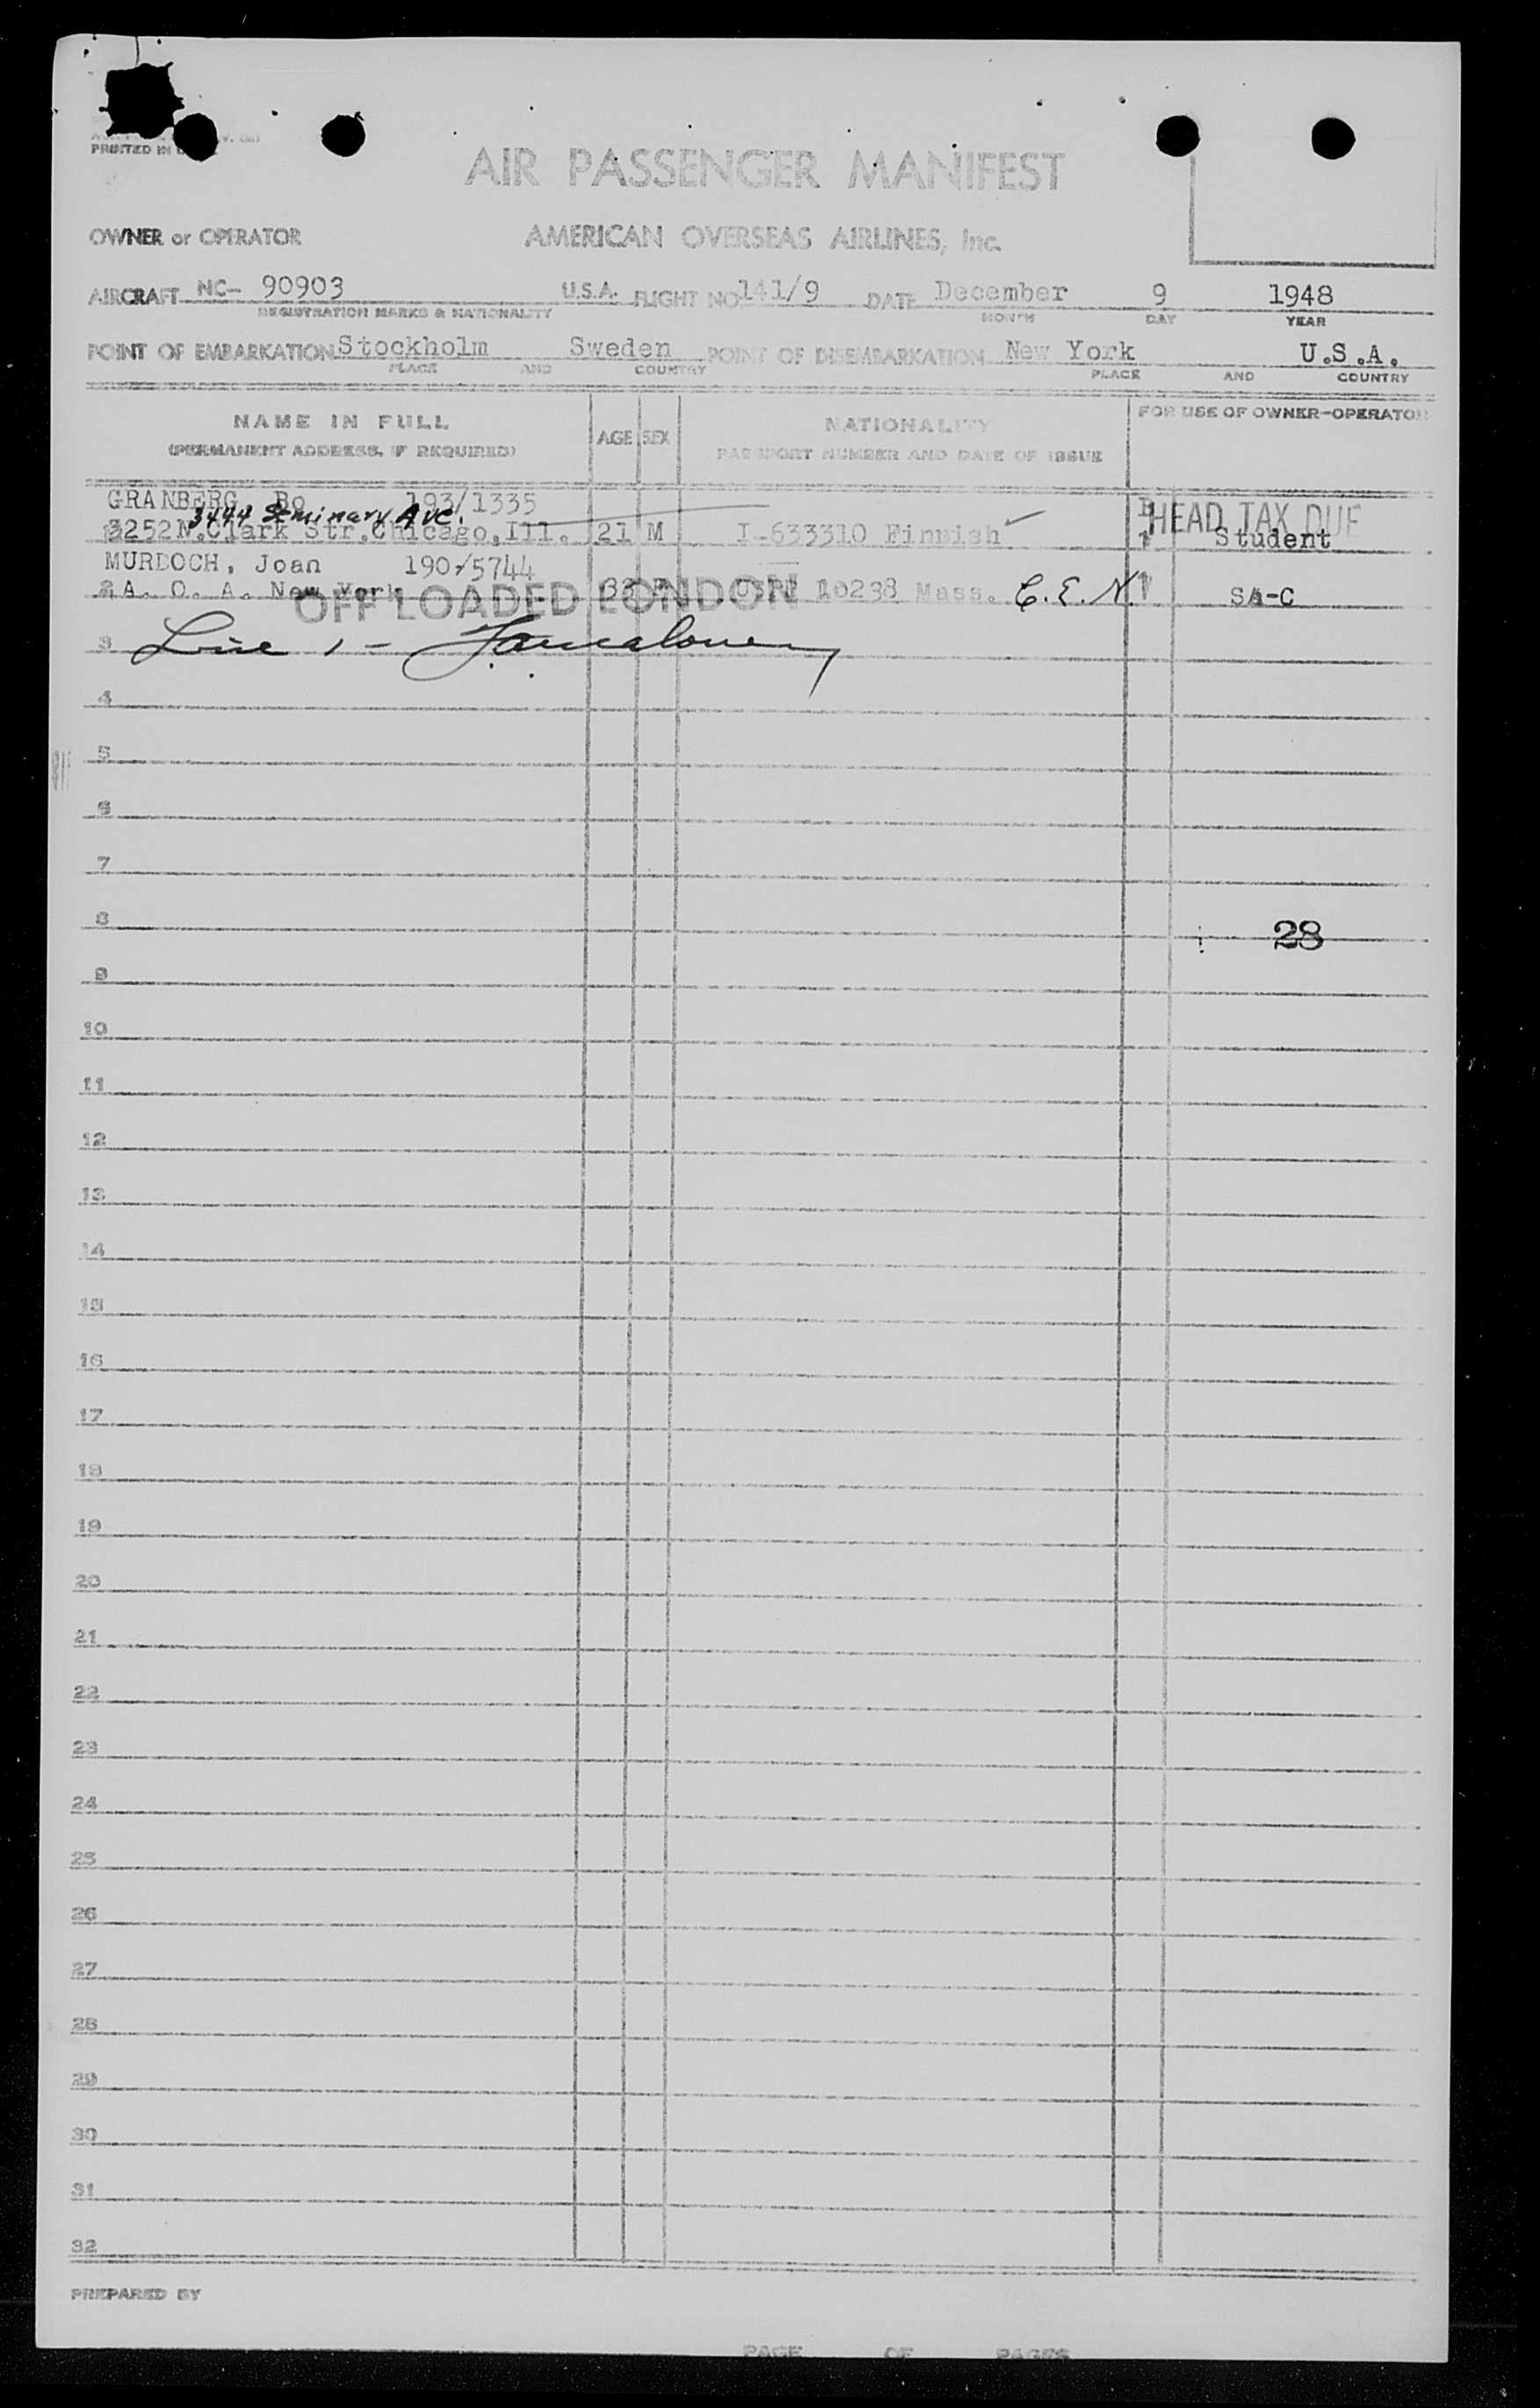 PRINTED IN
AIR PASSENGER MANIFEST
OWNER or OPERATOR AMERICAN OVERSEAS AIRLINES, Inc.
AIRCRAFT NC- 90903 U.S.A. FLIGHT NO. 141/9 DATE December 9 1948
REGISTRATION MARKS & NATIONALITY MONTH DAY YEAR
POINT OF EMBARKATION Stockholm Sweden POINT OF DISEMBARKATION New York U.S.A.
PLACE AND COUNTRY PLACE AND COUNTRY
NAME IN FULL AGE SEX NATIONALITY FOR USE OF OWNER-OPERATOR
(PERMANENT ADDRESS, IF REQUIRED) PASSPORT NUMBER AND DATE OF ISSUE
GRANBERG, Bo 193/1335 HEAD TAX DUE
3444 Seminary Ave.
3252 N. Clark Str. Chicago, Ill. 21 M I-633310 Finnish Student
MURDOCH, Joan 190/5744
2 A. O. A. New York 33 F 10238 Mass. C.E.N. SA-C
OFF LOADED LONDON
3 Line 1 -
4
5
6
7
8 28
9
10
11
12
13
14
15
16
17
18
19
20
21
22
23
24
25
26
27
28
29
30
31
32
PREPARED BY
PAGE OF PAGES